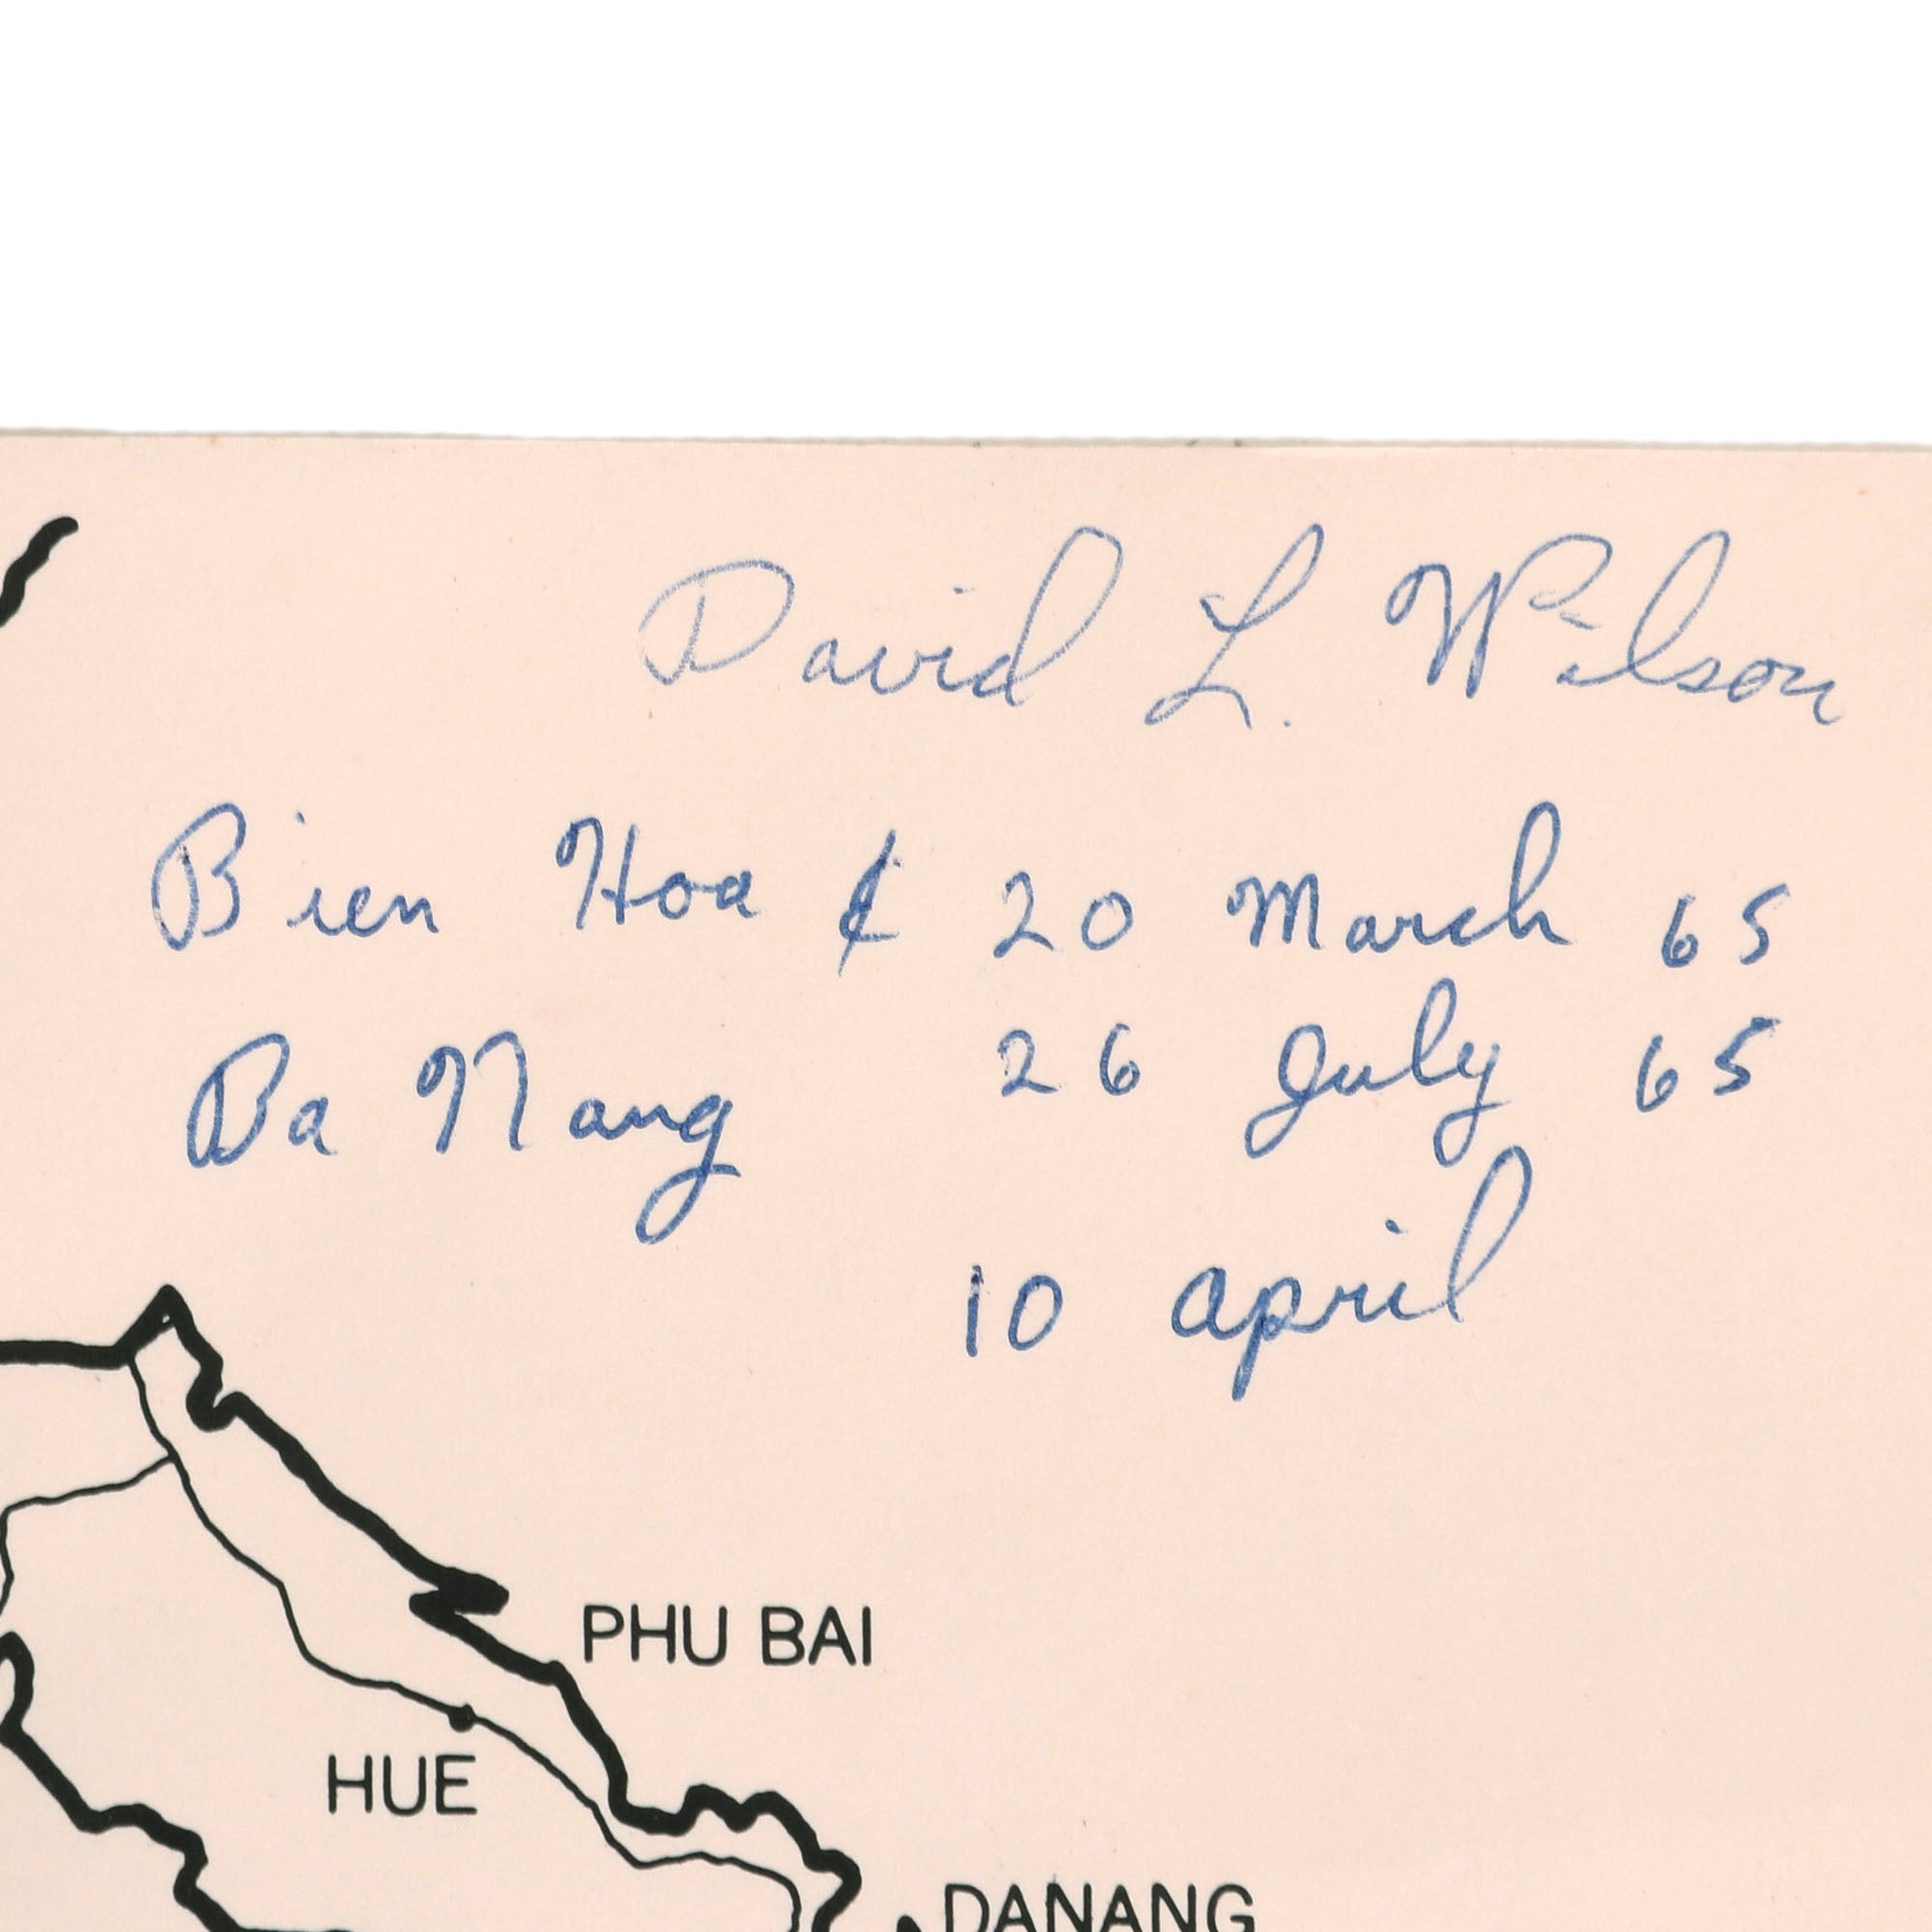 David L. Wilson
Bien Hoa & 20 March 65
Da Nang 26 July 65
10 april
PHU BAI
HUE
DANANG